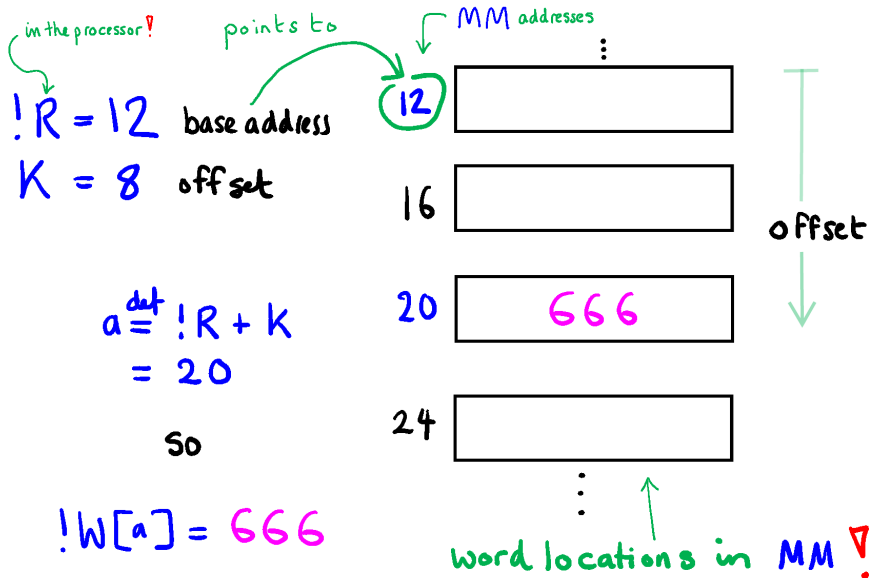 in the processor!
points to
MM addresses
!R = 12 base address
K = 8 offset
12
16
offset
a def= !R + K
= 20
20
666
so
24
!W[a] = 666
word locations in MM !